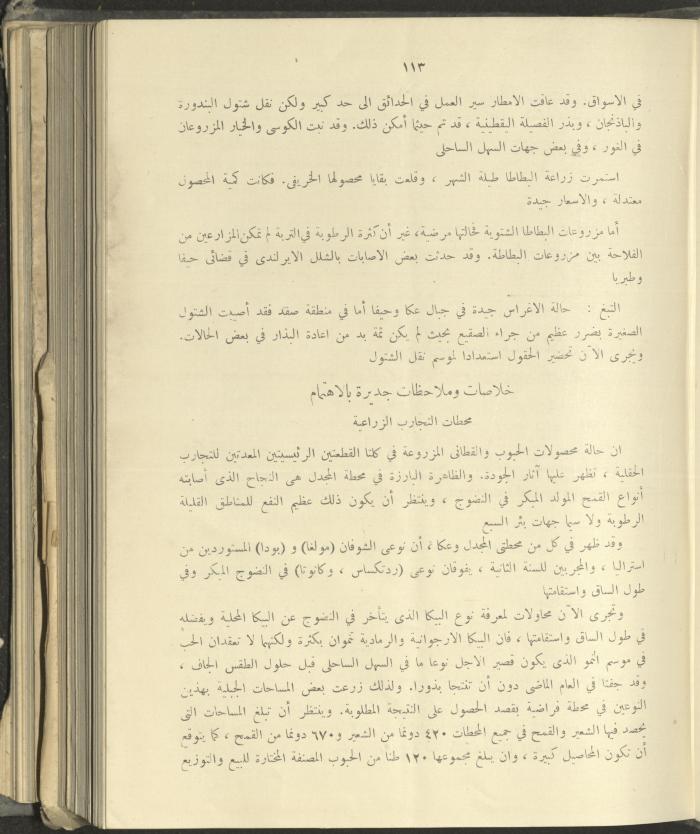 ١١٣
في الاسواق. وقد عاقت الامطار سير العمل في الحدائق الى حد كبير ولكن نقل شتول البندورة
والباذنجان ، وبذر الفصيلة اليقطينية ، قد تم حيثما أمكن ذلك. وقد نبت الكوسى والخيار المزروعان
في الغور ، وفي بعض جهات السهل الساحلى
استمرت زراعة البطاطا طيلة الشهر ، وقلعت بقايا محصولها الخريفى. فكانت كمية المحصول
معتدلة ، والاسعار جيدة
أما مزروعات البطاطا الشتوية فحالتها مرضية، غير أن كثرة الرطوبة في التربة لم تمكن المزارعين من
الفلاحة بين مزروعات البطاطة. وقد حدثت بعض الاصابات بالشلل الايرلندى في قضائى حيفا
وطبريا
التبغ : حالة الاغراس جيدة في جبال عكا وحيفا أما في منطقة صفد فقد أصيبت الشتول
الصغيرة بضرر عظيم من جراء الصقيع بحيث لم يكن ثمة بد من اعادة البذار في بعض الحالات.
وتجرى الآن تحضير الحقول استعدادا لموسم نقل الشتول
خلاصات وملاحظات جديرة بالاهتمام
محطات التجارب الزراعية
ان حالة محصولات الحبوب والقطانى المزروعة في كلتا القطعتين الرئيسيتين المعدتين للتجارب
الحقلية ، تظهر عليها آثار الجودة. والظاهرة البارزة في محطة المجدل هى النجاح الذى أصابته
أنواع القمح المولد المبكر في النضوج ، وينتظر أن يكون ذلك عظيم النفع للمناطق القليلة
الرطوبة ولا سيما جهات بئر السبع
وقد ظهر في كل من محطتى المجدل وعكا ، أن نوعى الشوفان (مولغا) و (بودا) المستوردين من
استراليا ، والمجربين للسنة الثانية ، يفوقان نوعى (ردتكساس ، وكانوتا) في النضوج المبكر وفي
طول الساق واستقامتها
وتجرى الآن محاولات لمعرفة نوع البيكا الذى يتأخر في النضوج عن البيكا المحلية ويفضله
في طول الساق واستقامتها ، فان البيكا الارجوانية والرمادية تموان بكثرة ولكنهما لا تعقدان الحب
في موسم النمو الذى يكون قصير الاجل نوعا ما في السهل الساحلى قبل حلول الطقس الجاف ،
وقد جفتا في العام الماضى دون أن تنتجا بذورا. ولذلك زرعت بعض المساحات الجبلية بهذين
النوعين في محطة فراضية بقصد الحصول على النتيجة المطلوبة. وينتظر أن تبلغ المساحات التى
يحصد فيها الشعير والقمح في جميع المحطات ٤٢٠ دونما من الشعير و٦٧٠ دونما من القمح ، كما يتوقع
أن تكون المحاصيل كبيرة ، وان يبلغ مجموعها ١٢٠ طنا من الحبوب المصنفة المختارة للبيع والتوزيع